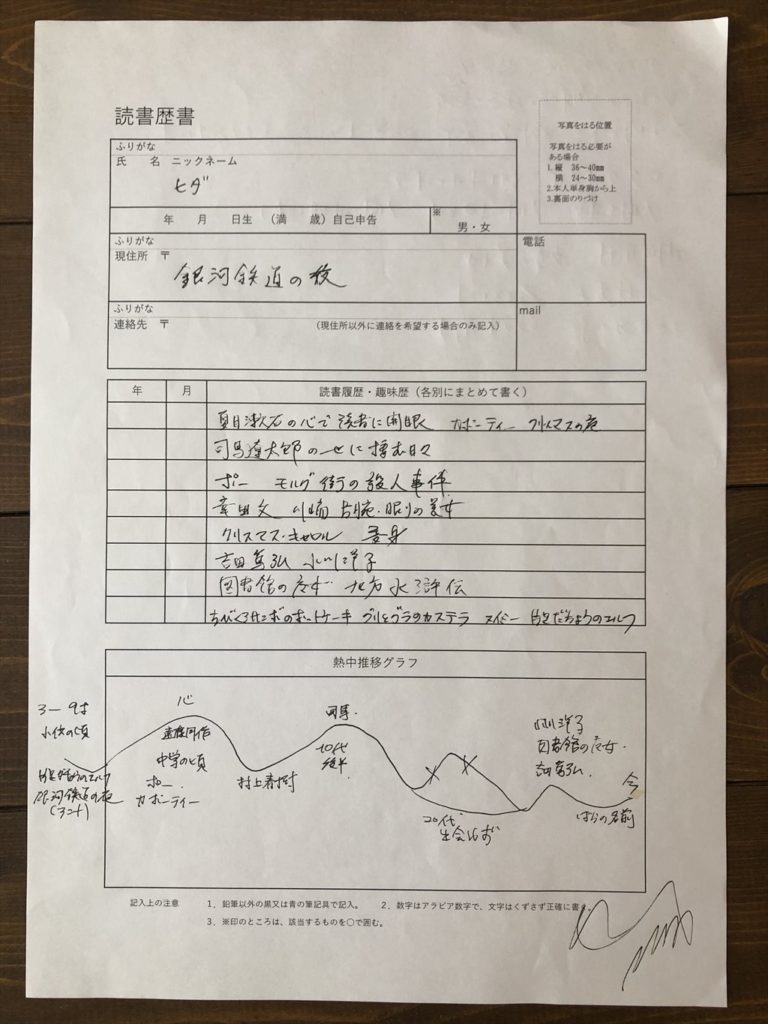 読書歴書
写真をはる位置
写真をはる必要が
ある場合
1.縦 36〜40mm
横 24〜30mm
2.本人単身胸から上
3.裏面のりづけ
ふりがな
氏 名 ニックネーム
ヒダ
年 月 日生 (満 歳)自己申告
※
男・女
ふりがな
現住所 〒
銀河鉄道の夜
電話
ふりがな
連絡先 〒 (現住所以外に連絡を希望する場合のみ記入)
mail
年 月 読書履歴・趣味歴(各別にまとめて書く)
夏目漱石の心で読者に開眼 カポーティー クリスマスの夜
司馬遼太郎の 日々
ポー モルグ街の殺人事件
幸田文 川端 片腕・眠りの美女
クリスマス・キャロル
吉田篤弘 小川洋子
図書館の魔女 北方水滸伝
ちびくろサンボのホットケーキ グリとグラのカステラ スイミー 片足だちょうのエルフ
熱中推移グラフ
3ー9才
小供の頃
片足だちょうのエルフ
銀河鉄道の夜
(アニメ)
心
中学の頃
ポー
カポーティー
村上春樹
司馬
10代
後半
20代
小川洋子
図書館の魔女
吉田篤弘
今
ばらの名前
記入上の注意 1、鉛筆以外の黒又は青の筆記具で記入。 2、数字はアラビア数字で、文字はくずさず正確に書く。
3、※印のところは、該当するものを〇で囲む。